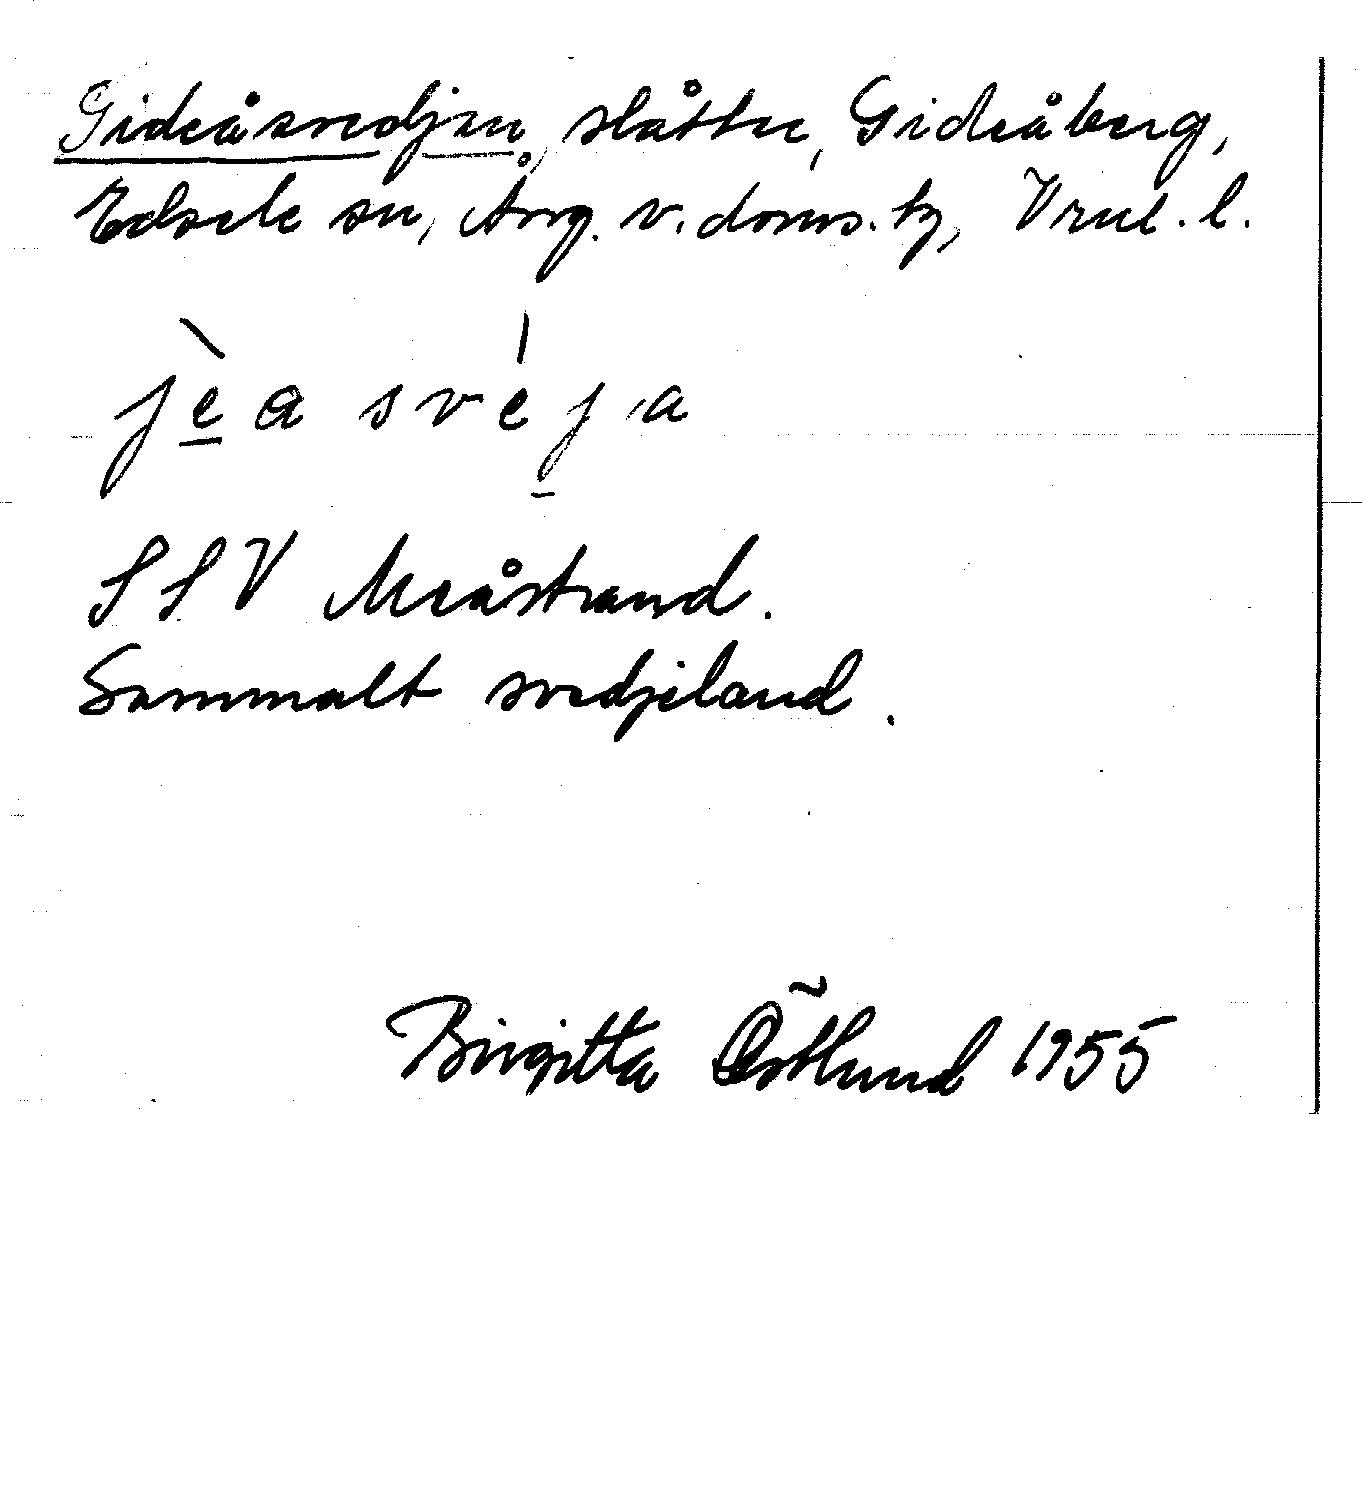 Gideåsvedjan, slåtter, Gideåberg,
Edsele sn, Ång. v. doms. tg, Vrnl. l.
jèa svéja
SSV Meåstrand.
Gammalt svedjeland.
Birgitta Östlund 1955